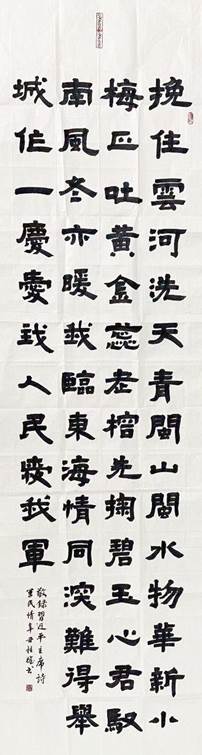 挽住雲河洗天青閩山閩水物華新小
梅正吐黄金蕊老榕先掬碧玉心君馭
南風冬亦暖我臨東海情同深難得舉
城作一慶愛我人民愛我軍
敬録習近平主席詩
軍民情